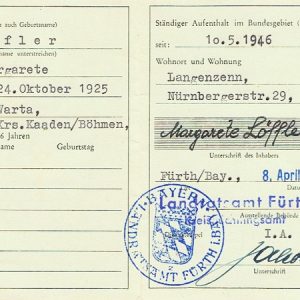 auch Geburtsname)
fler
unterstreichen)
rgarete
24.Oktober 1925
Warta,
Krs.Kaaden/Böhmen,
16 Jahren
Name Geburtstag
Ständiger Aufenthalt im Bundesgebiet
seit: 10.5.1946
Wohnort und Wohnung
Langenzenn,
Nürnbergerstr.29,
Margarete Löffle
Unterschrift des Inhabers
Fürth/Bay., 8. April
Landratsamt Fürth
Ausstellende Behörde
I.A.
Unterschrift
BAYERN
LANDRATSAMT FÜRTH i.BAY.